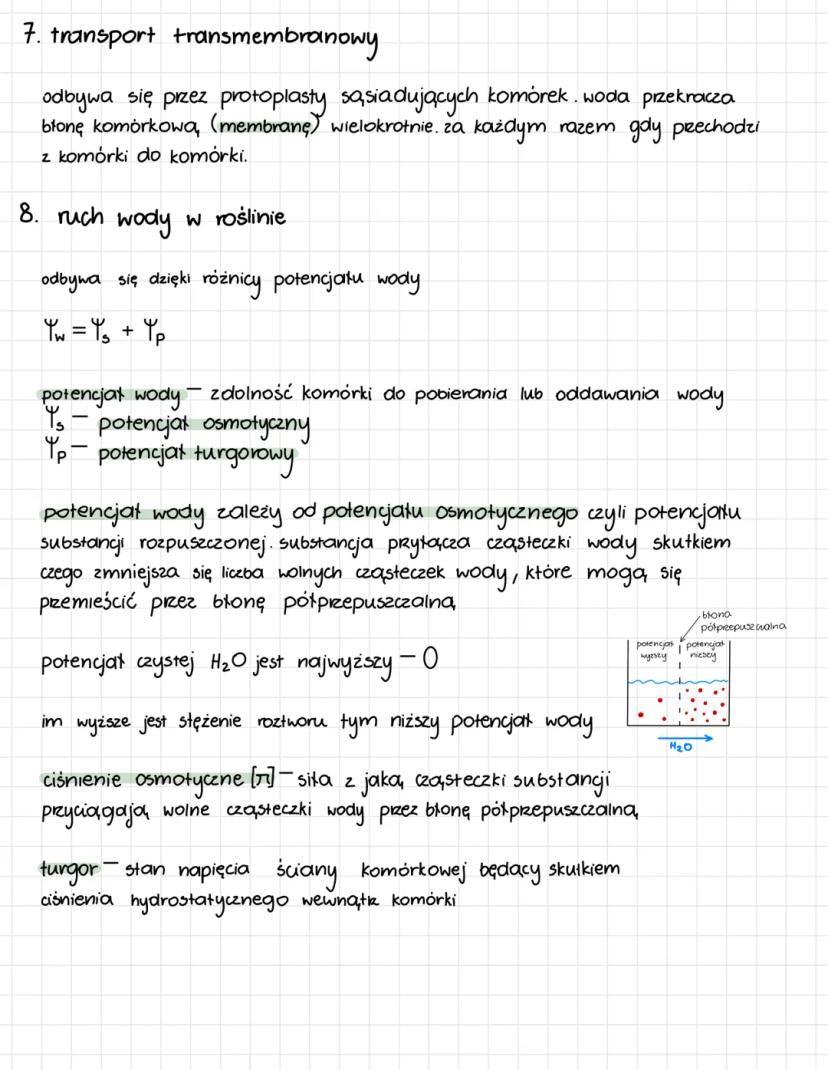 7. transport transmembranowy
odbywa się przez protoplasty sąsiadujących komórek. woda przekracza
błonę komórkową (membranę) wielokrotnie. za każdym razem gdy przechodzi
z komórki do komórki.
8. ruch wody w roślinie
odbywa się dzięki różnicy potencjału wody
Ψw = Ψs + Ψp
potencjał wody – zdolność komórki do pobierania lub oddawania wody
Ψs – potencjał osmotyczny
Ψp – potencjał turgorowy
potencjał wody zależy od potencjału osmotycznego czyli potencjału
substancji rozpuszczonej. substancja przyłącza cząsteczki wody skutkiem
czego zmniejsza się liczba wolnych cząsteczek wody, które mogą się
przemieścić przez błonę półprzepuszczalną
błona
półprzepuszczalna
potencjał wyższy
potencjał niższy
H₂O
potencjał czystej H₂O jest najwyższy – 0
im wyższe jest stężenie roztworu tym niższy potencjał wody
ciśnienie osmotyczne [π] – siła z jaką cząsteczki substancji
przyciągają wolne cząsteczki wody przez błonę półprzepuszczalną
turgor – stan napięcia ściany komórkowej będący skutkiem
ciśnienia hydrostatycznego wewnątrz komórki